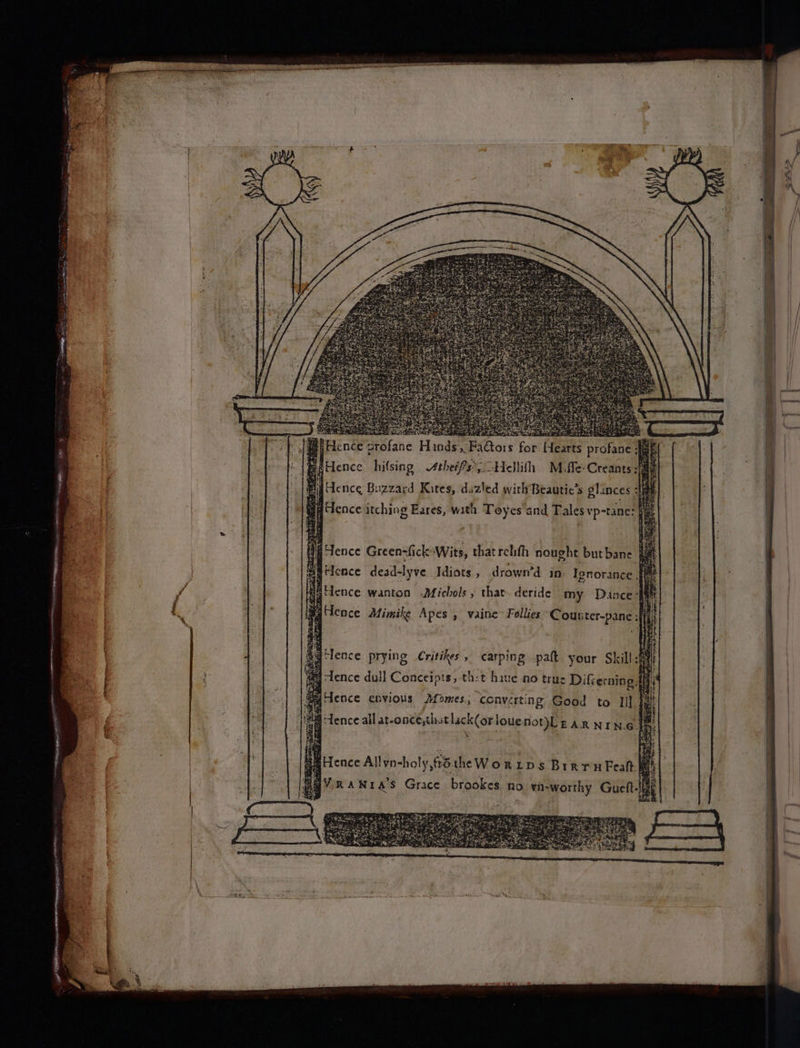 Hence profane Hands, Factors for Hearts profane:
Hence hissing Atheists, Hellish Misse-Creants:
Hence Buzzard Kites, dazled with Beautie's glances:
Hence itching Eares, with Toyes and Tales vp-tane:
Hence Green-sick Wits, that relish nought but bane
Hence dead-lyve Idiots, drown'd in Ignorance
Hence wanton Michols, that deride my Dance:
Hence Mimike Apes, vaine Follies Counter-pane:
Hence prying Critikes, carping past your Skill:
Hence dull Conceipts, that haue no true Discerning:
Hence envious Momes, converting Good to Ill
Hence all at-once, that lack (or loue not) LEARNING:
Hence All vn-holy, frõ the WORLDS BIRTH Feast
VRANIA'S Grace brookes no vn-worthy Guest.